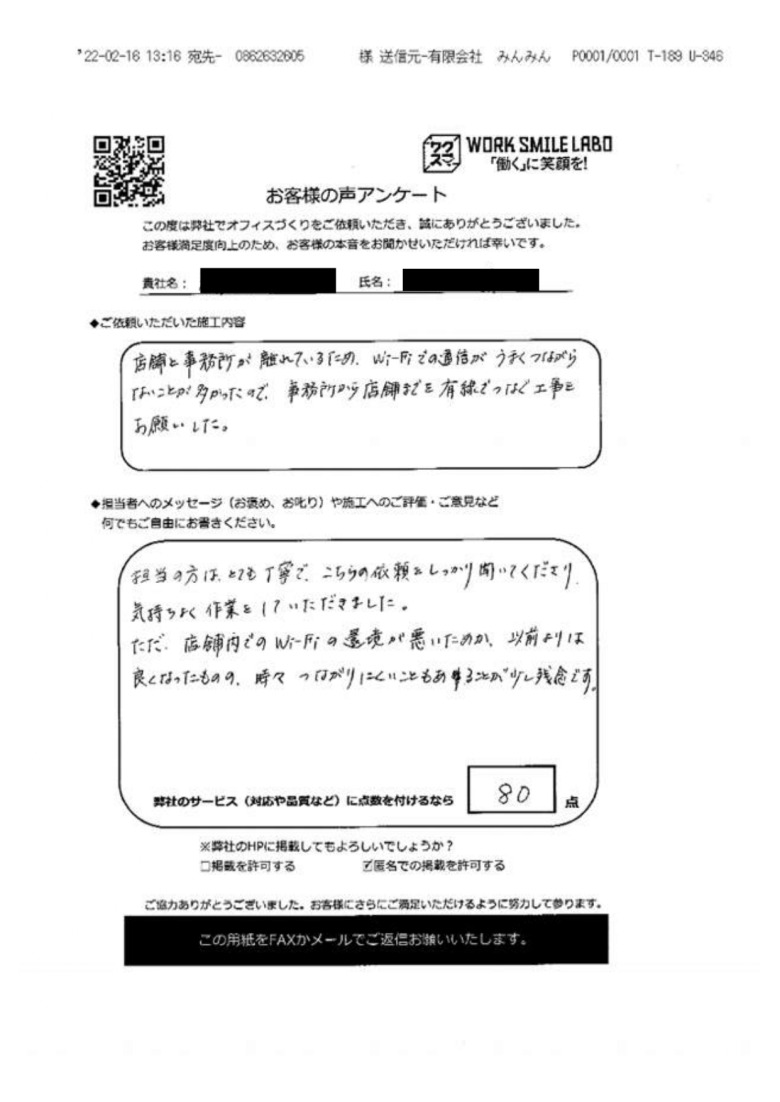 '22-02-16 13:16 宛先- 0862632605 様 送信元-有限会社 みんみん P0001/0001 T-189 U-346
ワクスマ WORK SMILE LABO
「働く」に笑顔を!
お客様の声アンケート
この度は弊社でオフィスづくりをご依頼いただき、誠にありがとうございました。
お客様満足度向上のため、お客様の本音をお聞かせいただければ幸いです。
貴社名: 氏名:
◆ご依頼いただいた施工内容
店舗と事務所が離れているため、Wi-Fiでの通信がうまくつながら
ないことが多かったので、事務所から店舗までを有線でつなぐ工事を
お願いした。
◆担当者へのメッセージ(お褒め、お叱り)や施工へのご評価・ご意見など
何でもご自由にお書きください。
担当の方は、とても丁寧で、こちらの依頼をしっかり聞いてくださり、
気持ちよく作業をしていただきました。
ただ、店舗内でのWi-Fiの環境が悪いためか、以前よりは
良くなったものの、時々つながりにくいこともあることが少し残念です。
弊社のサービス(対応や品質など)に点数を付けるなら 80 点
※弊社のHPに掲載してもよろしいでしょうか?
□掲載を許可する ☑匿名での掲載を許可する
ご協力ありがとうございました。お客様にさらにご満足いただけるように努力して参ります。
この用紙をFAXかメールでご返信お願いいたします。